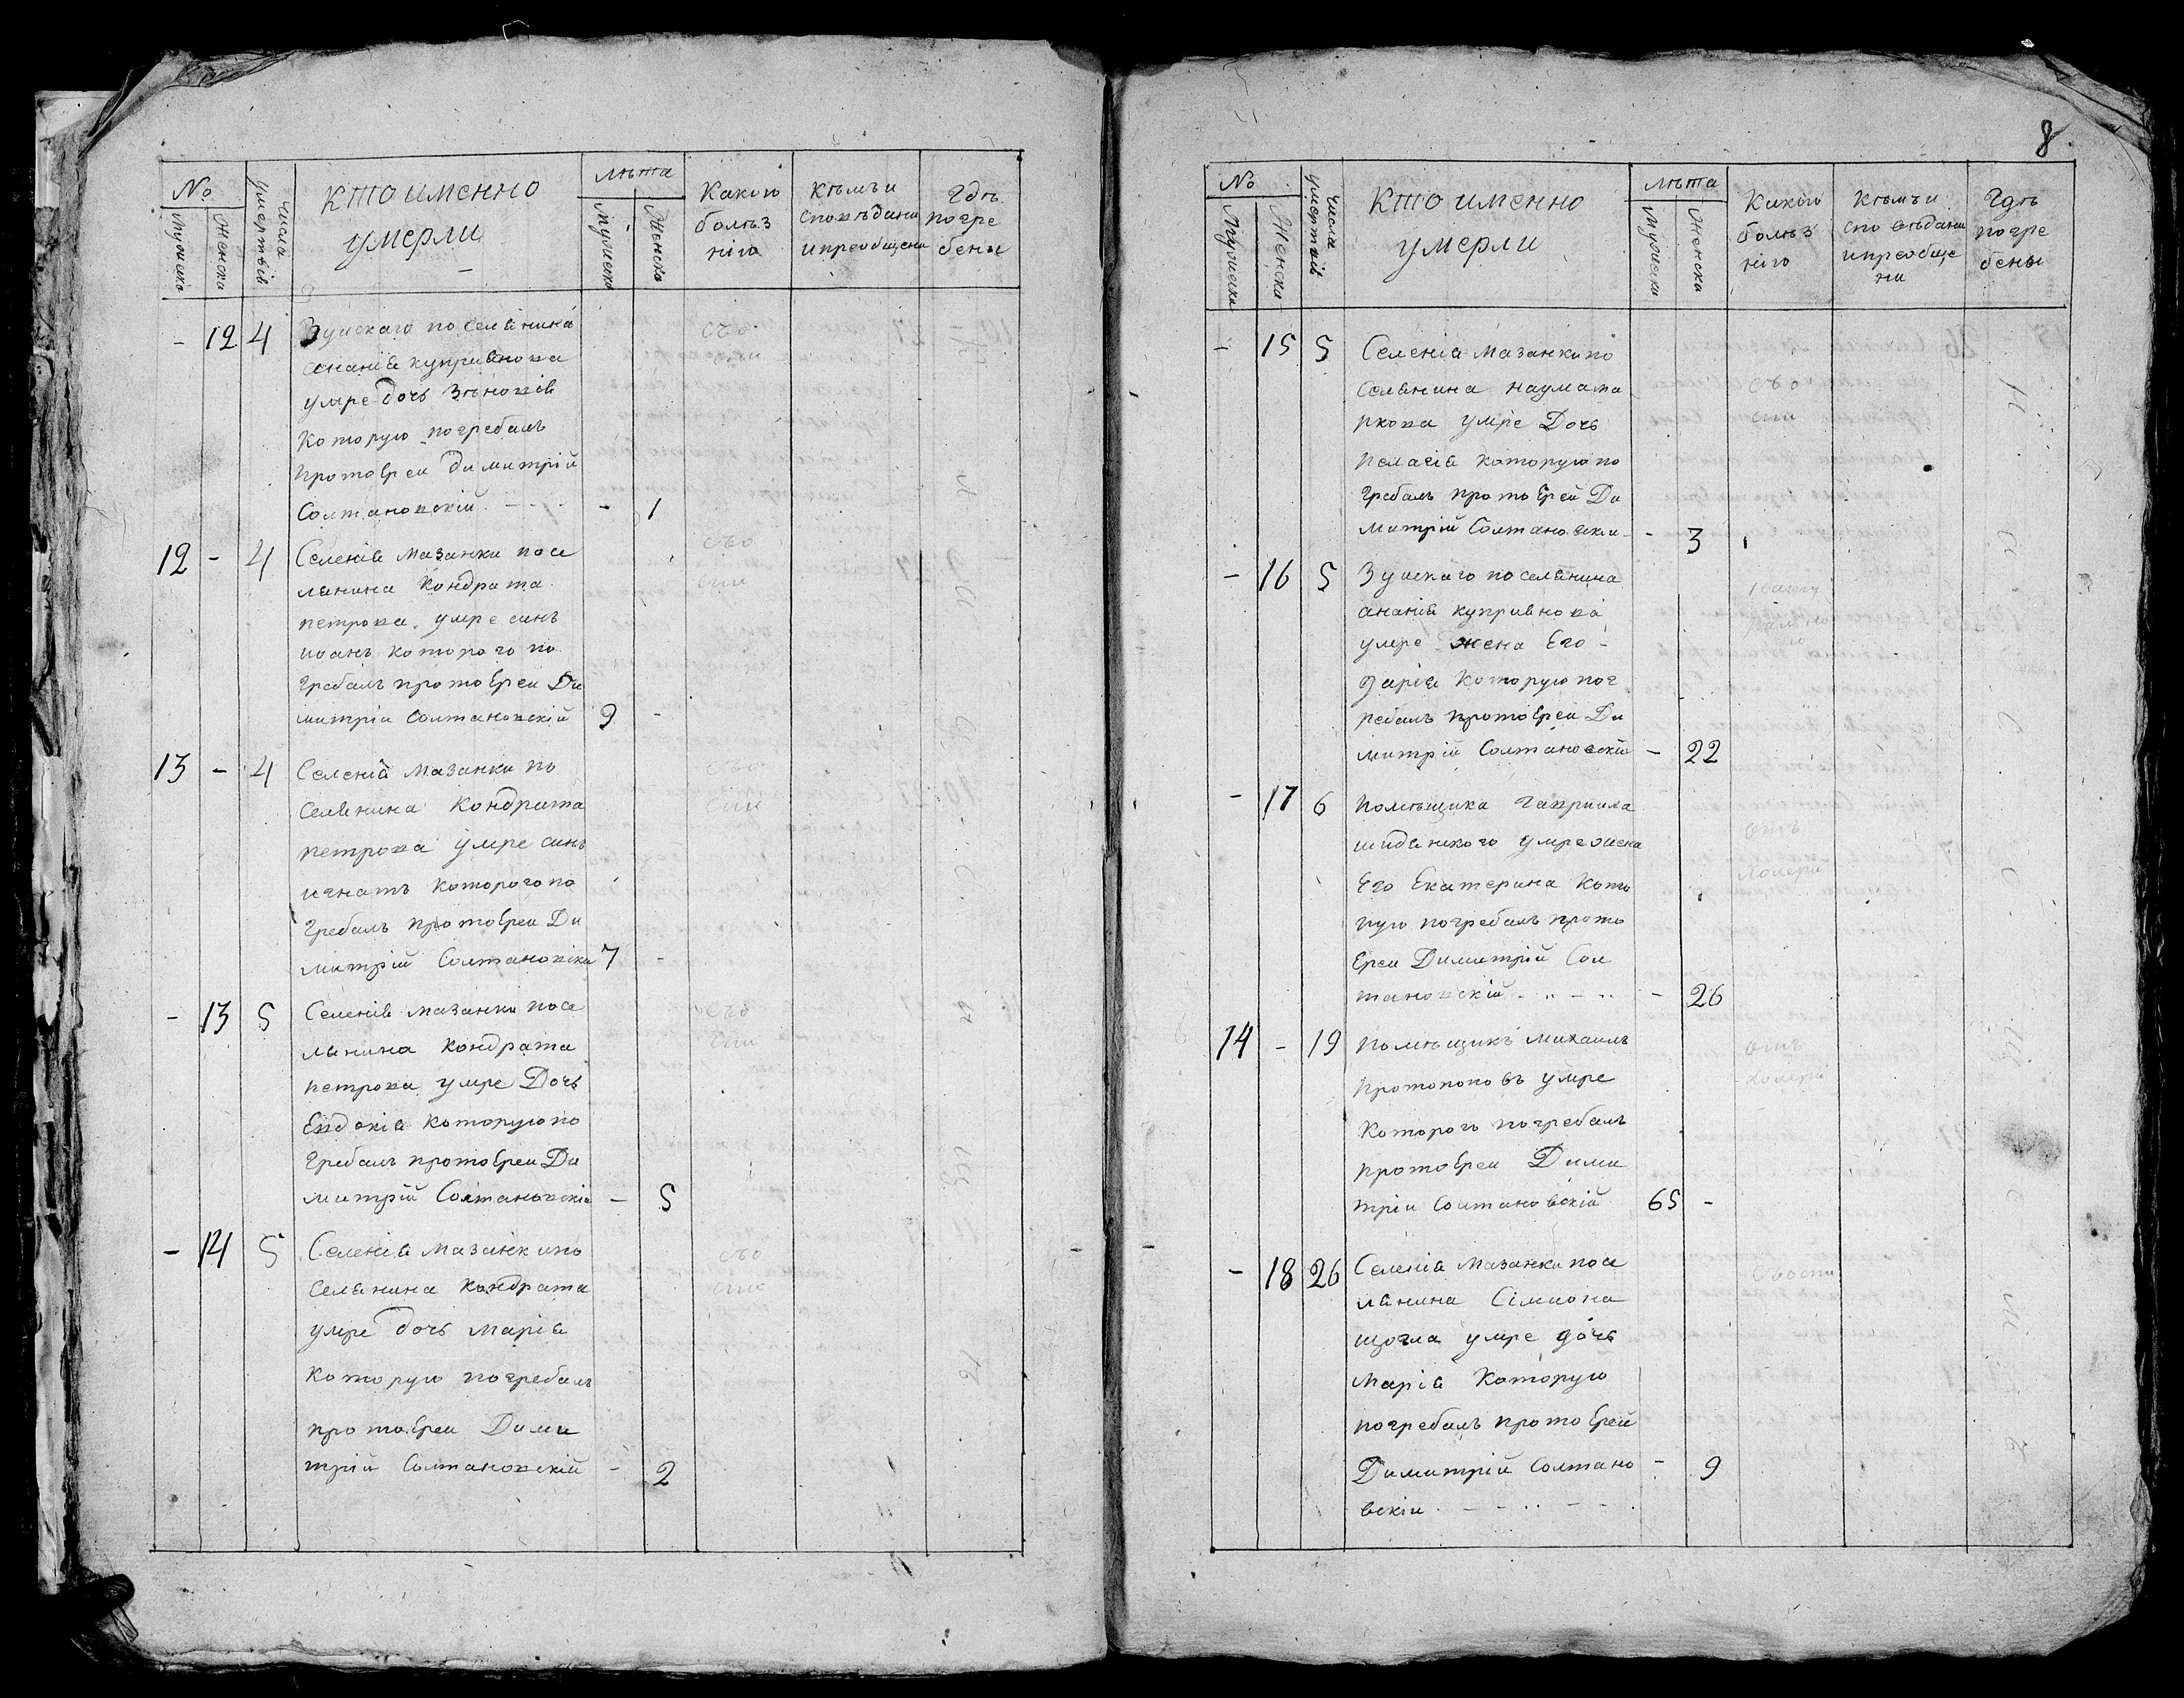 №
Мужиска
Женска
Числа
умертвія
кто именно
умерли
лѣта
Мужиска
Женска
Какою
болѣз
нію
Кѣмъ и
споведани
и преобщени
Гдѣ
погре
бены
- 12 4 Зуискаго поселянина
ананія куприянова
умре дочь Зѣновія
которую погребалъ
протоереи димитрій
Солтановскій - 1
съо
спи
12 - 4 Селенія мазанки посе
лянина кондрата
петрова умре синъ
иоанъ которого по
гребалъ протоереи Ди
митріи солтановскій 9 -
съо
спи
13 - 4 Селенія мазанки по
селянина кондрата
петрова умре синъ
игнатъ которого по
гребалъ протоереи Ди
митрій Солтановски 7 -
съо
спи
- 13 5 Селенія мазанки посе
лянина кондрата
петрова умре Дочь
Евдокія которую по
гребалъ протоереи Ди
митрій Солтановскіи - 5
съо
спи
- 14 5 Селенія мазанки по
селянина кондрата
умре дочь марія
которую погребалъ
протоереи Дими
трій Солтановскій - 2
съо
спи
8
№
Мужиска
Женска
Числа
умертвія
Кто именно
умерли
лѣта
Мужиска
Женска
Какою
болѣз
нію
Кѣмъ и
споведани
и преобще
ни
Гдѣ
погре
бены
- 15 5 Селенія мазанки по
селянина наума ма
ркова умре Дочь
пелагія которую по
гребалъ протоерей Ди
митрій Солтановски - 3
съо
спи
- 16 5 Зуискаго поселянина
ананія куприянова
умре жена Его -
дарія которую пог
ребалъ протоереи Ди
митрій Солтановскіи - 22
- 17 6 помѣщика гавриила
умре жена
Его Екатерина кото
рую погребалъ прото
Ереи Димитрій Сол
тановскій - 26
отъ
холери
14 - 19 помѣщикъ михаилъ
протопоповъ умре
которого погребалъ
протоереи Дими
тріи солтановскій 65 -
отъ
холери
- 18 26 Селенія мазанки посе
лянина Сімиона
щогла умре дочь
марія которую
погребалъ протоерей
Димитрій солтано - 9
вскіи
съоспи